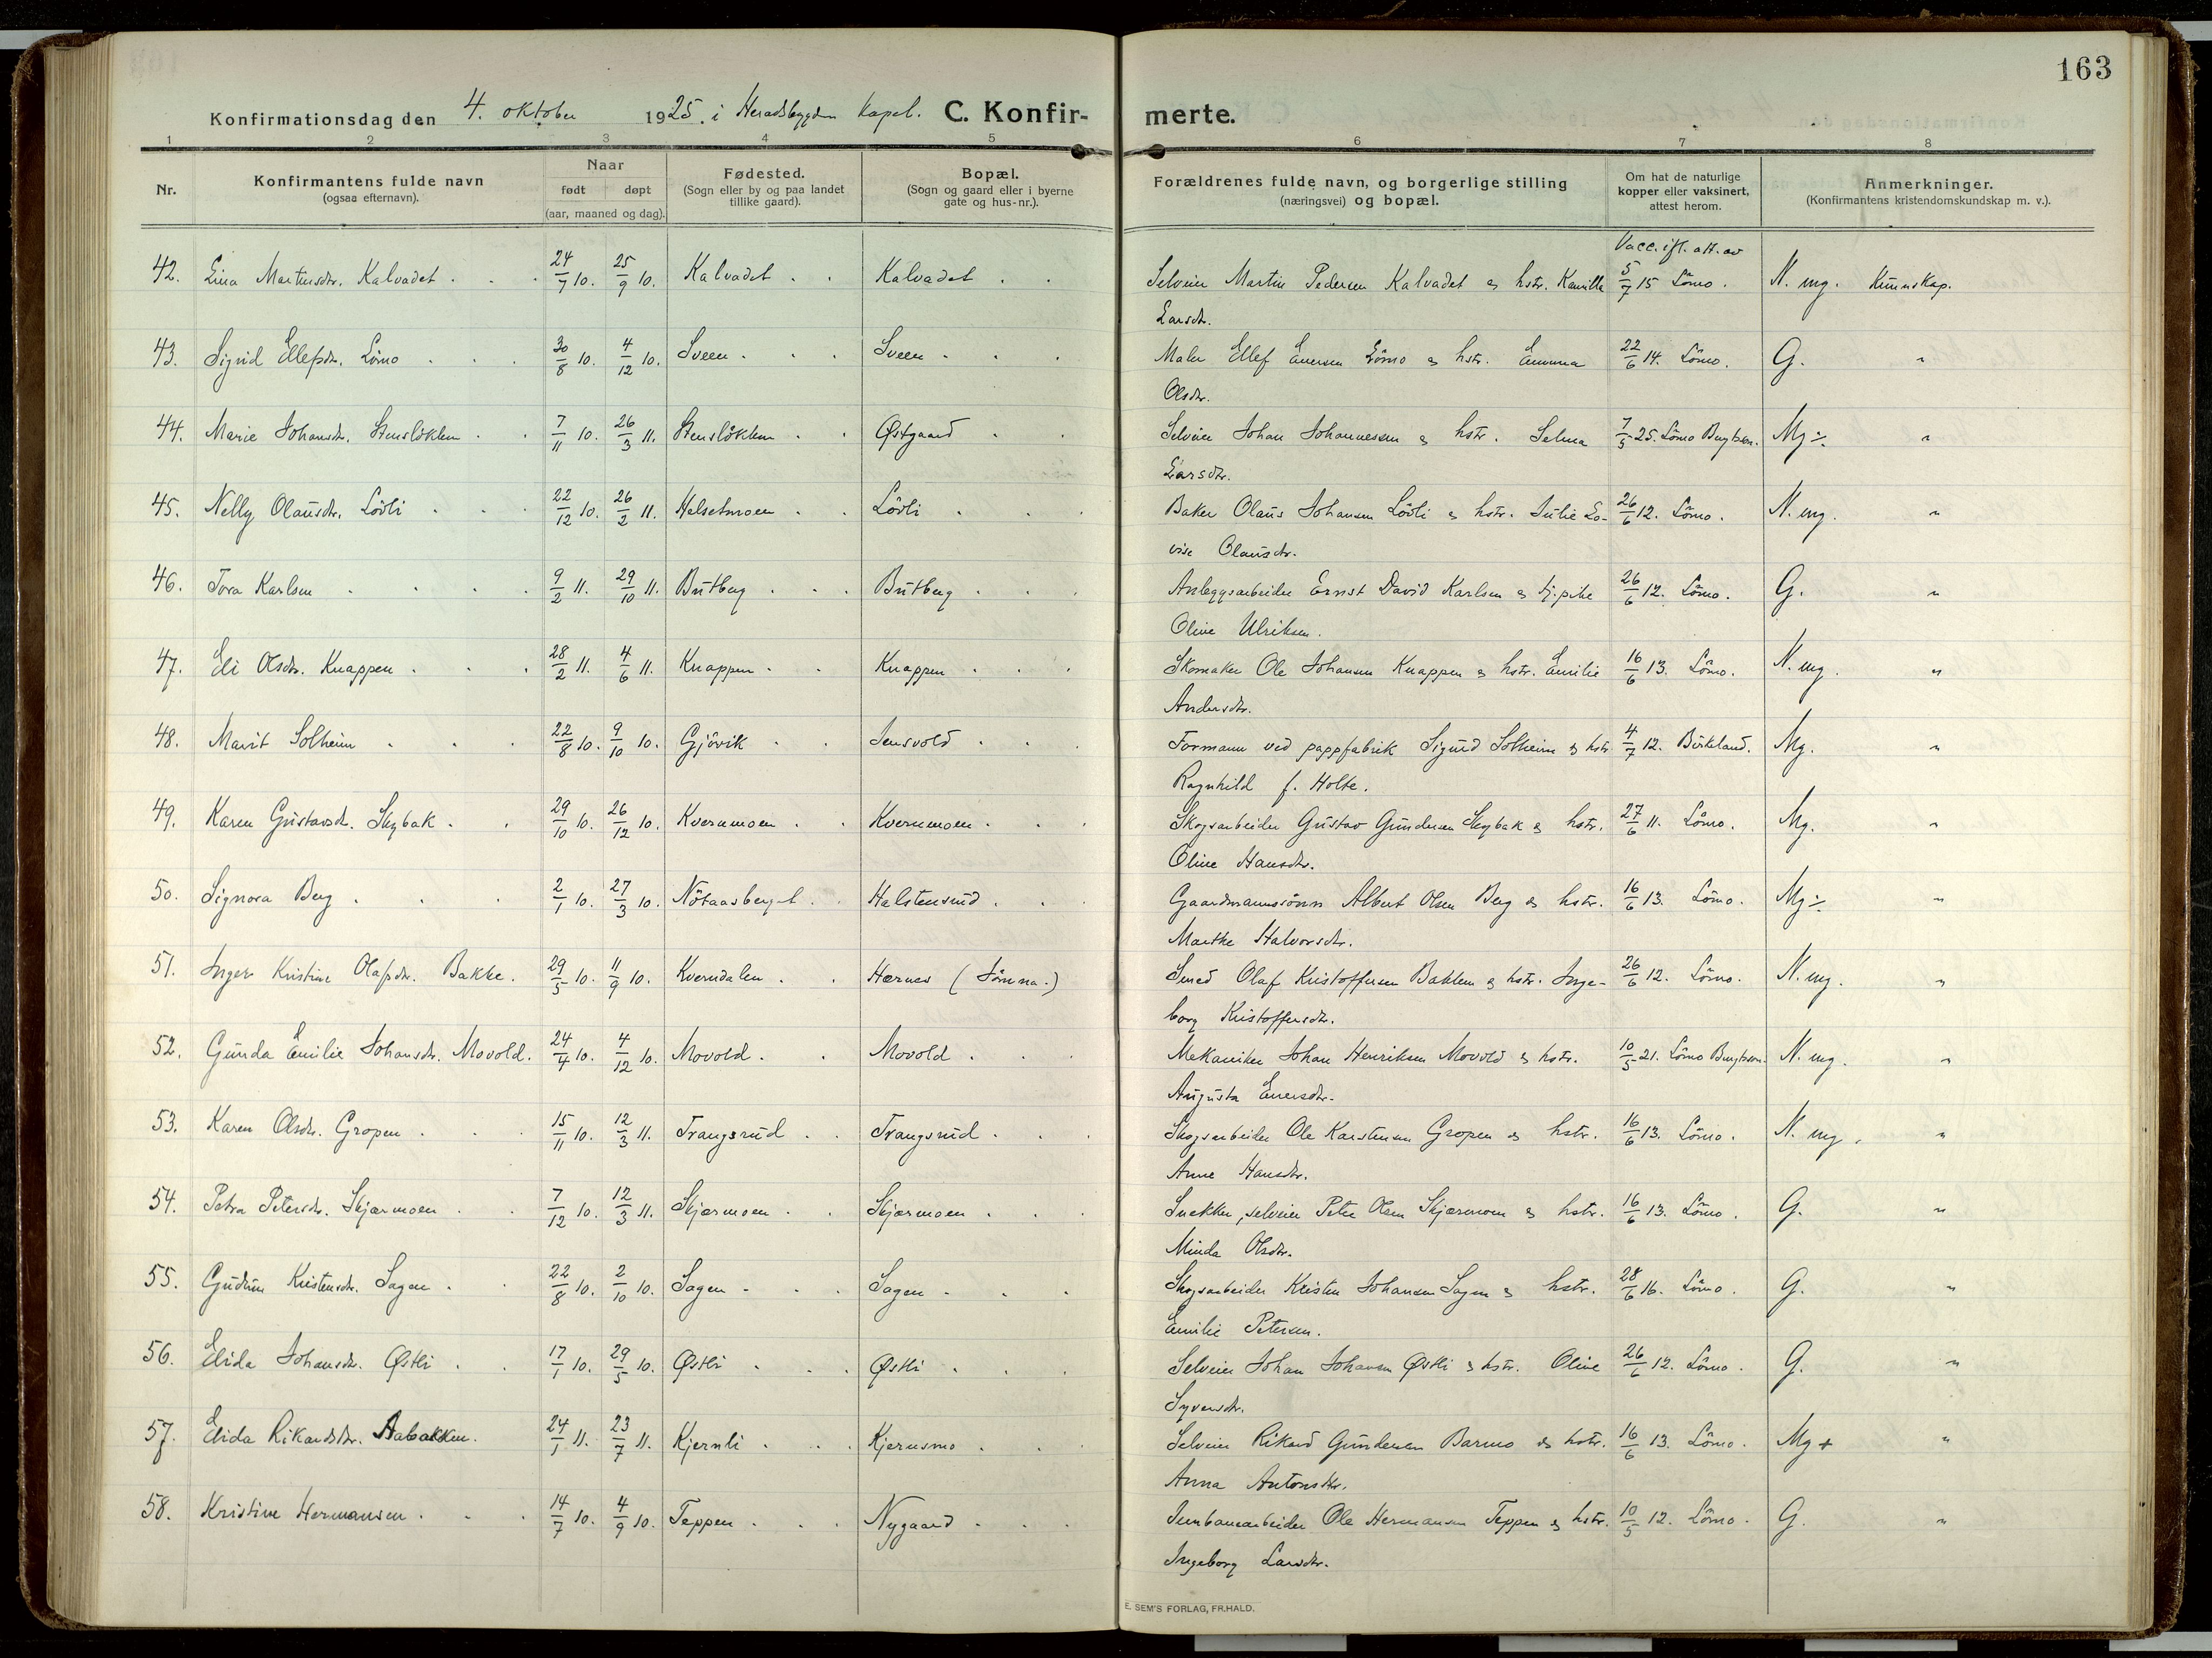 163
Konfirmationsdag den 4. oktober 1925. i Heradsbygden kapel. C. Konfirmerte.
1 2 3 4 5 6 7 8
Nr.
Konfirmantens fulde navn
(ogsaa efternavn).
Naar
født døpt
(aar, maaned og dag).
Fødested.
(Sogn eller by og paa landet
tillike gaard).
Bopæl.
(Sogn og gaard eller i byerne
gate og hus-nr.).
Forældrenes fulde navn, og borgerlige stilling
(næringsvei) og bopæl.
Om hat de naturlige
kopper eller vaksinert,
attest herom.
Anmerkninger.
(Konfirmantens kristendomskundskap m. v.).
Vacc. ifl. att. av
42. Lina Martinsdtr. Kalvadet . . . 24/7 10. 25/9 10. Kalvadet . . Kalvadet . . Selveier Martin Pedersen Kalvadet & hstr. Kamilla 5/7 15 Lömo. N. mg. Kunnskap.
Larsdtr.
43. Sigrid Ellefsdtr. Lömo . . . 30/8 10. 4/12 10. Sveen . . . Sveen . . . Maler Ellef Enersen Lömo & hstr. Emma 22/6 14. Lömo. G. "
Olsdtr.
44. Marie Johansdtr. Stenslökken . . 7/11 10. 26/3 11. Stenslökken . . Østgaard . . Selveier Johan Johannessen & hstr. Selma 7/5 25. Lömo Bergtsen. Mg ÷ "
Larsdtr.
45. Nelly Olausdtr. Lövli . . . 22/12 10. 26/2 11. Helsetmoen . . Lövli . . . Baker Olaus Johansen Lövli & hstr. Julie Lo- 26/6 12. Lömo. N. mg. "
vise Olausdtr.
46. Tora Karlsen . . . . 9/2 11. 29/10 11. Butberg . . . Butberg . . . Anleggsarbeider Ernst David Karlsen & tj.pike 26/6 12. Lömo. G. "
Oline Ulriksen.
47. Eli Olsdtr. Knappen . . . 28/2 11. 4/6 11. Knappen . . Knappen . . . Skomaker Ole Johansen Knappen & hstr. Emilie 16/6 13. Lömo. N. mg. "
Andersdtr.
48. Marit Solheim . . . 22/8 10. 9/10 10. Gjövik . . Jensvold . . . Formann ved pappfabrik Sigurd Solheim & hstr 4/7 12. Birkeland. Mg. "
Ragnhild f. Holte.
49. Karen Gustavsdtr. Skybak . . 29/10 10. 26/12 10. Kvernmoen . . Kvernmoen . . . Skogsarbeider Gustav Gundersen Skybak & hstr. 27/6 11. Lömo. Mg. "
Oline Hansdtr.
50. Signora Berg . . . 2/1 10. 27/3 10. Nötaasberget . . Halstensrud . . . Gaardmannssönn Albert Olsen Berg & hstr. 16/6 13. Lömo. Mg ÷ "
Marthe Halvorsdtr.
51. Inger Kristine Olafsdtr. Bakke. 29/5 10. 11/9 10. Kverndalen . . Hernes (Jömna.) Smed Olaf Kristoffersen Bakken & hstr. Inge- 26/6 12. Lömo. N. mg. "
borg Kristoffersdtr.
52. Gunda Emilie Johansdtr. Movold. 24/4 10. 4/12 10. Movold . . Movold . . . Mekaniker Johan Henriksen Movold & hstr. 10/5 21. Lömo Bergtsen. N. mg. "
Augusta Enersdtr.
53. Karen Olsdtr. Gropen . . . 15/11 10. 12/3 11. Trangsrud . . Trangsrud . . . Skogsarbeider Ole Karstensen Gropen & hstr. 16/6 13. Lömo. N. mg. "
Anne Hansdtr.
54. Petra Petersdtr. Skjærmoen . . 7/12 10. 12/3 11. Skjærmoen . . Skjærmoen . . . Snekker, selveier Peter Olsen Skjærmoen & hstr. 16/6 13. Lömo. G. "
Minda Olsdtr.
55. Gudrun Kristensdtr. Sagen . . 22/8 10. 2/10 10. Sagen . . . Sagen . . . Skogsarbeider Kristen Johansen Sagen & hstr. 28/6 16. Lömo. G. "
Emilie Petersen.
56. Elida Johansdtr. Østli . . 17/1 10. 29/5 10. Østli . . . Østli . . . Selveier Johan Johansen Østli & hstr. Oline 26/6 12. Lömo. G. "
Syversdtr.
57. Elida Rikardsdtr. Aabakken. 24/1 11. 23/7 11. Kjernli . . . Kjernsmo . . . Selveier Rikard Gundersen Barmo & hstr. 16/6 13. Lömo. Mg + "
Anna Antonsdtr.
58. Kristine Hermansen . . . 14/7 10. 4/9 10. Teppen . . . Nygaard . . . Jernbanearbeider Ole Hermansen Teppen & hstr. 10/5 12. Lömo. G. "
Ingeborg Larsdtr.
E. SEM'S FORLAG, FR.HALD.